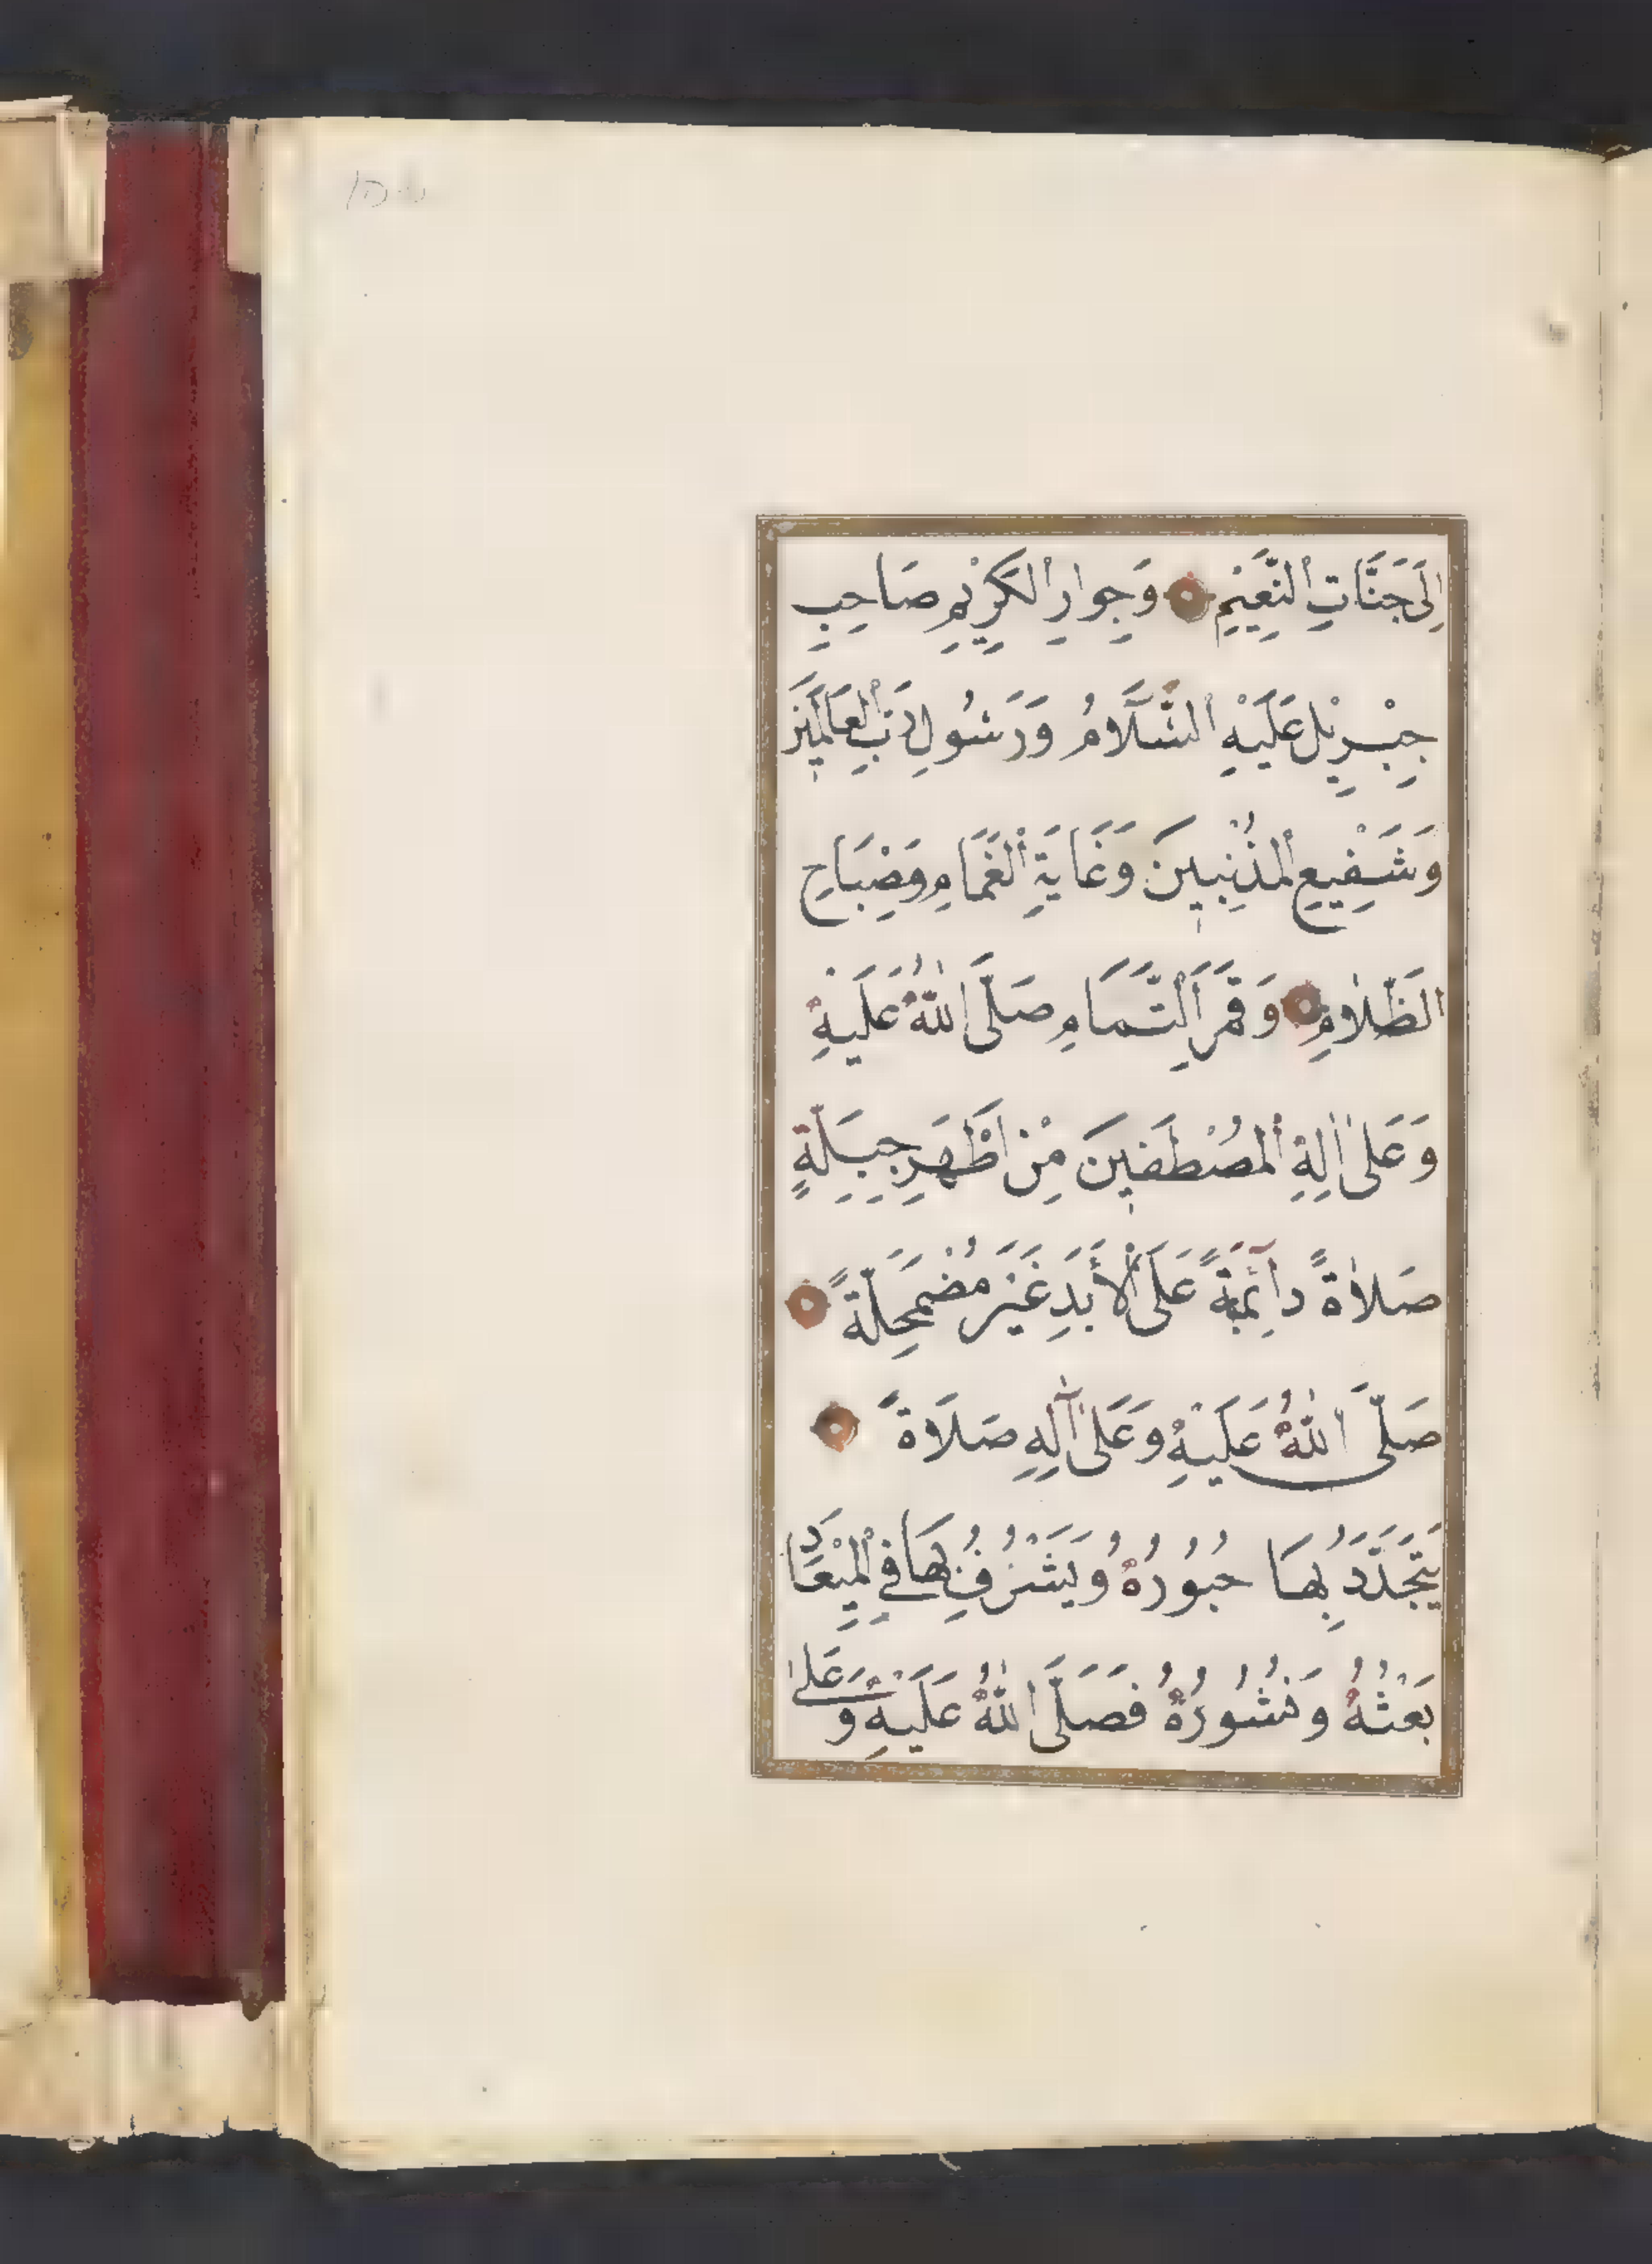 اِلَى جَنَّاتِ النَّعِيْمِ وَجِوَارِ الكَرِيْمِ صَاحِبِ
جِبْرِيْلَ عَلَيْهِ السَّلَامُ وَرَسُولِ رَبِّ العَالَمِيْنَ
وَشَفِيْعِ المُذْنِبِيْنَ وَغَايَةِ الغَمَامِ وَمِصْبَاحِ
الظَّلَامِ وَقَمَرِ التَّمَامِ صَلَّى اللهُ عَلَيْهِ
وَعَلَى اٰلِهِ المُصْطَفَيْنَ مِنْ اَظْهَرِ جِبِلَّةٍ
صَلَاةً دَآئِمَةً عَلَى الْأَبَدِ غَيْرَ مُضْمَحِلَّةً
صَلَّى اللهُ عَلَيْهِ وَعَلَى آلِهِ صَلَاةً
يَتَجَدَّدُ بِهَا حُبُورُهُ وَيَشْرُفُ بِهَا فِي الْمِيْعَادِ
بَعْثُهُ وَنُشُورُهُ فَصَلَّى اللهُ عَلَيْهِ وَعَلَى